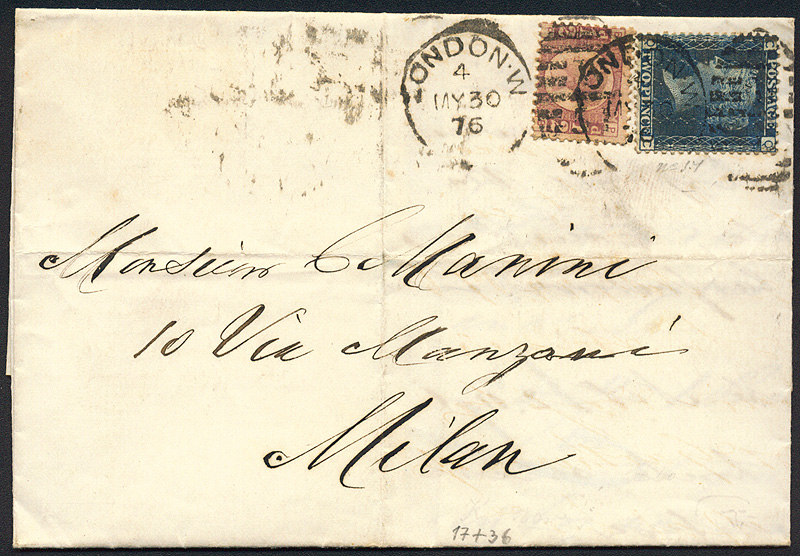 LONDON·W
4
MY 30
76
TWO PENCE
POSTAGE
Monsieur C Manini
10 Via Manzoni
Milan
17+36